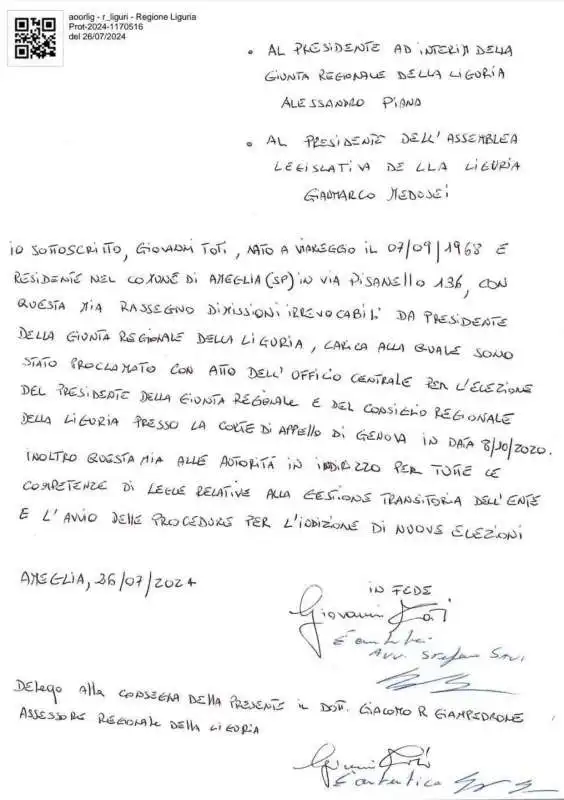 aoorlig - r_liguri - Regione Liguria
Prot-2024-1170516
del 26/07/2024
• AL PRESIDENTE AD INTERIM DELLA
GIUNTA REGIONALE DELLA LIGURIA
ALESSANDRO PIANA
• AL PRESIDENTE DELL'ASSEMBLEA
LEGISLATIVA DE LLA LIGURIA
GIANMARCO MEDUSEI
IO SOTTOSCRITTO, GIOVANNI TOTI, NATO A VIAREGGIO IL 07/09/1968 E
RESIDENTE NEL COMUNE DI AMEGLIA (SP) IN VIA PISANELLO 136, CON
QUESTA MIA RASSEGNO DIMISSIONI IRREVOCABILI DA PRESIDENTE
DELLA GIUNTA REGIONALE DELLA LIGURIA, CARICA ALLA QUALE SONO
STATO PROCLAMATO CON ATTO DELL'UFFICIO CENTRALE PER L'ELEZIONE
DEL PRESIDENTE DELLA GIUNTA REGIONALE E DEL CONSIGLIO REGIONALE
DELLA LIGURIA PRESSO LA CORTE DI APPELLO DI GENOVA IN DATA 8/10/2020.
INOLTRO QUESTA MIA ALLE AUTORITÀ IN INDIRIZZO PER TUTTE LE
COMPETENZE DI LEGGE RELATIVE ALLA GESTIONE TRANSITORIA DELL'ENTE
E L'AVVIO DELLE PROCEDURE PER L'INDIZIONE DI NUOVE ELEZIONI
AMEGLIA, 26/07/2024
IN FEDE
Giovanni Toti
È autentica
Avv. Stefano Savi
Delego alla CONSEGNA DELLA PRESENTE IL DOTT. GIACOMO R GIAMPEDRONE
ASSESSORE REGIONALE DELLA LIGURIA
Giovanni Toti
È autentica